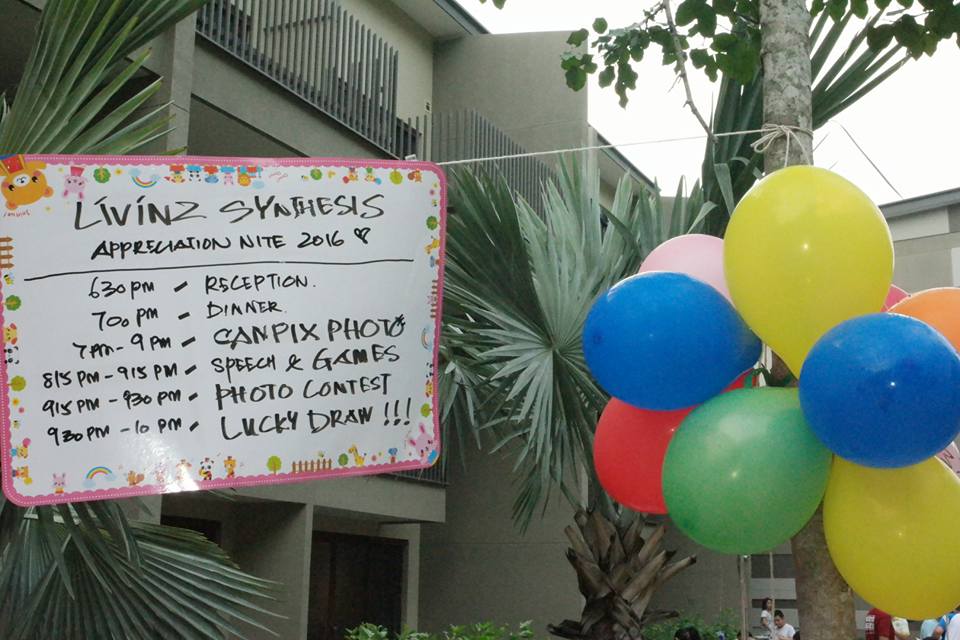 LiViNZ SYNTHESIS
APPRECIATION NITE 2016
630PM - RECEPTION.
700PM - DINNER.
7PM-9PM - CANPIX PHOTO
815PM-915PM - SPEECH & GAMES
915PM-930PM - PHOTO CONTEST
930PM-10PM - LUCKY DRAW !!!